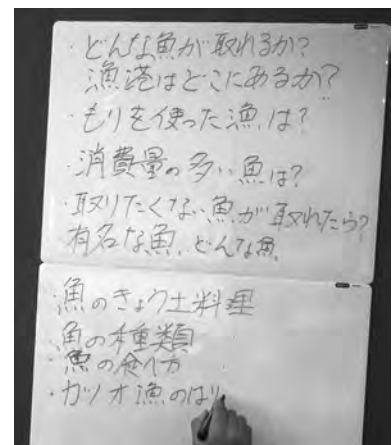 ・どんな魚が取れるか?
漁港はどこにあるか?
・もりを使った漁は?
・消費量の多い魚は?
・取りたくない魚が取れたら?
有名な魚、どんな魚
魚のきょう土料理
・魚の種類
・魚の食べ方
・カツオ漁のはり